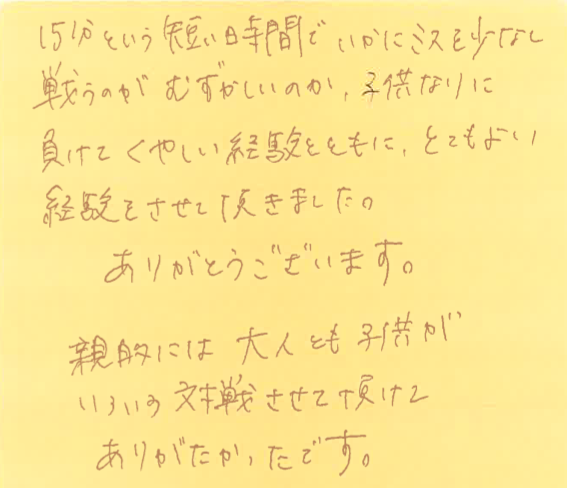 15分という短い時間でいかにミスを少なし
戦うのがむずかしいのか、子供なりに
負けてくやしい経験とともに、とてもよい
経験をさせて頂きました。
ありがとうございます。
親的には大人とも子供が
いろいろ対戦させて頂けて
ありがたかったです。